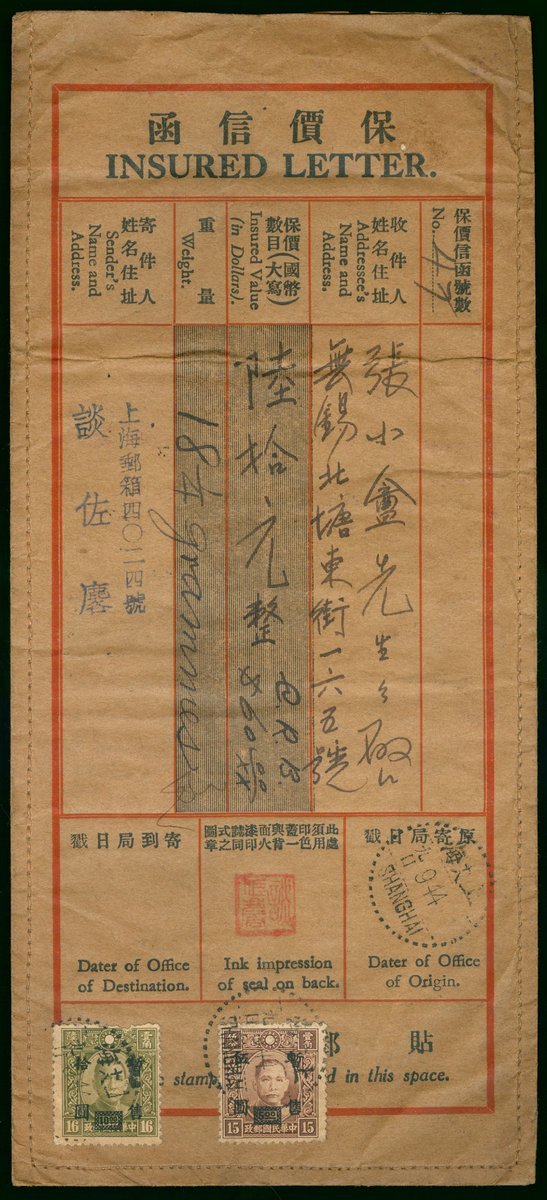 保價信函
INSURED LETTER.
保價信函號數
No. 47
收件人
姓名住址
Addressee's
Name and
Address.
保價(國幣
數目(大寫)
Insured Value
(in Dollars).
重量
Weight.
寄件人
姓名住址
Sender's
Name and
Address.
張小盦先生 啟
無錫北塘東街一六五號
陸拾元整
$60.00
184 grammes
上海郵箱四〇二四號
談佐麐
原寄局日戳
SHANGHAI
9 44
Dater of Office
of Origin.
此處須用印色蓋一與背面火漆印誌同式之圖章
Ink impression
of seal on back.
寄到局日戳
Dater of Office
of Destination.
貼 郵
stamp in this space.
暫售
拾圓
1000
16 中華民國郵政 16
暫售
圓
15 中華民國郵政 15